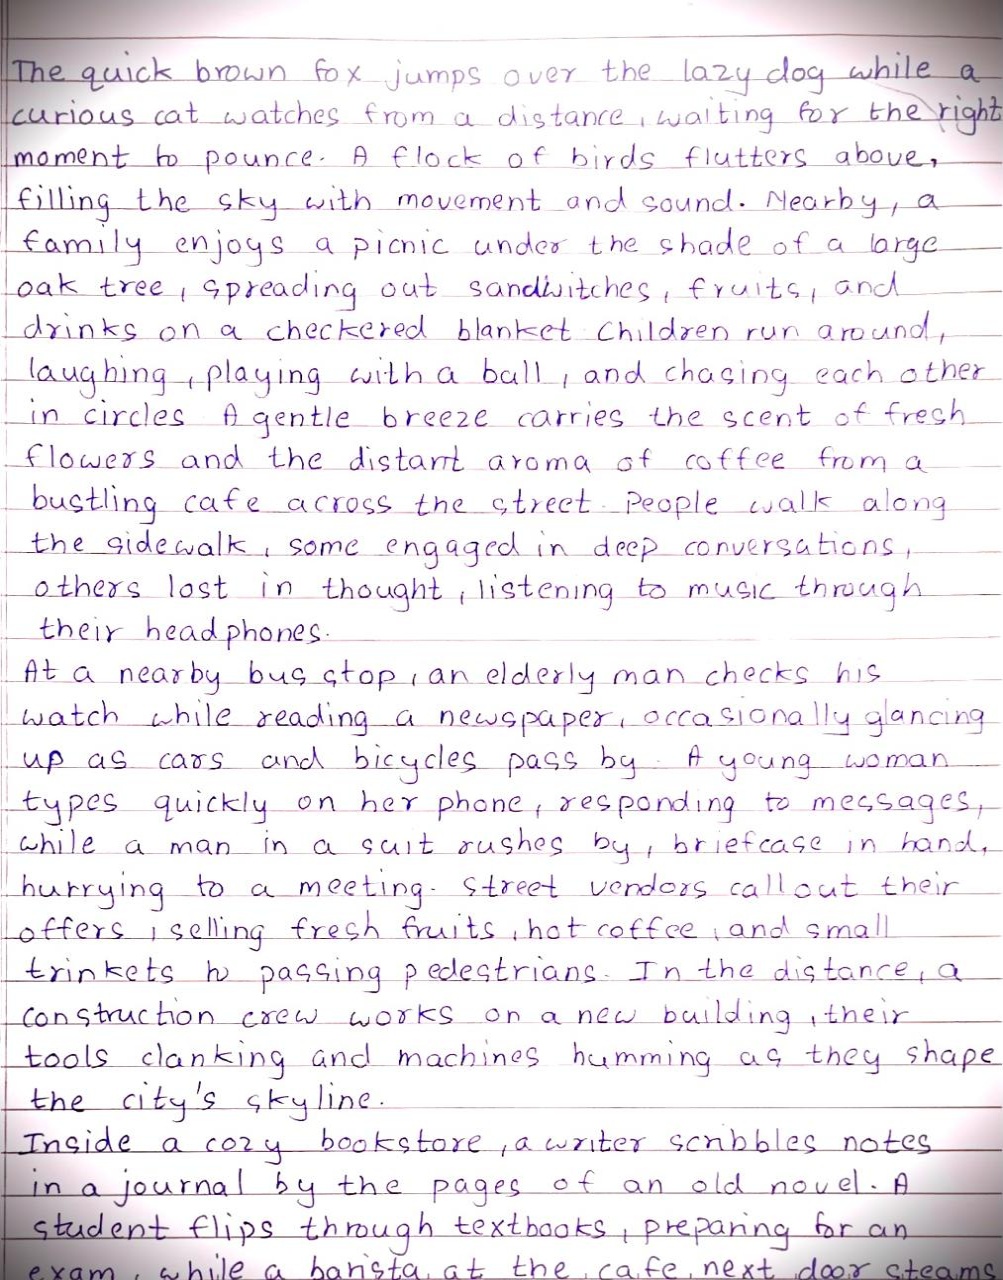 The quick brown fox jumps over the lazy dog while a
curious cat watches from a distance, waiting for the right
moment to pounce. A flock of birds flutters above,
filling the sky with movement and sound. Nearby, a
family enjoys a picnic under the shade of a large
oak tree, spreading out sandwitches, fruits, and
drinks on a checkered blanket Children run around,
laughing, playing with a ball, and chasing each other
in circles A gentle breeze carries the scent of fresh
flowers and the distant aroma of coffee from a
bustling cafe across the street. People walk along
the sidewalk, some engaged in deep conversations,
others lost in thought, listening to music through
their headphones.
At a nearby bus stop, an elderly man checks his
watch while reading a newspaper, occasionally glancing
up as cars and bicycles pass by. A young woman
types quickly on her phone, responding to messages,
while a man in a suit rushes by, briefcase in hand,
hurrying to a meeting. Street vendors call out their
offers, selling fresh fruits, hot coffee, and small
trinkets to passing pedestrians. In the distance, a
construction crew works on a new building, their
tools clanking and machines humming as they shape
the city's skyline.
Inside a cozy bookstore, a writer scribbles notes
in a journal by the pages of an old novel. A
student flips through textbooks, preparing for an
exam, while a barista at the cafe next door steams